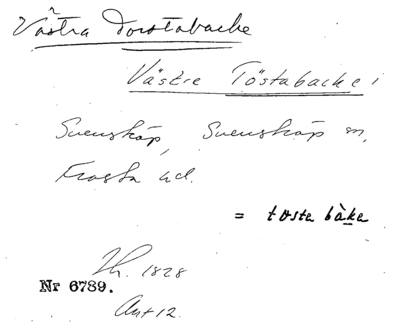 Västra Dorstabacke
Västre Töstabacke i
Svenskóp, Svenskóp sn,
Frosta hd.
= tosta bàka
Th. 1828
Nr 6789.
Ant 12.